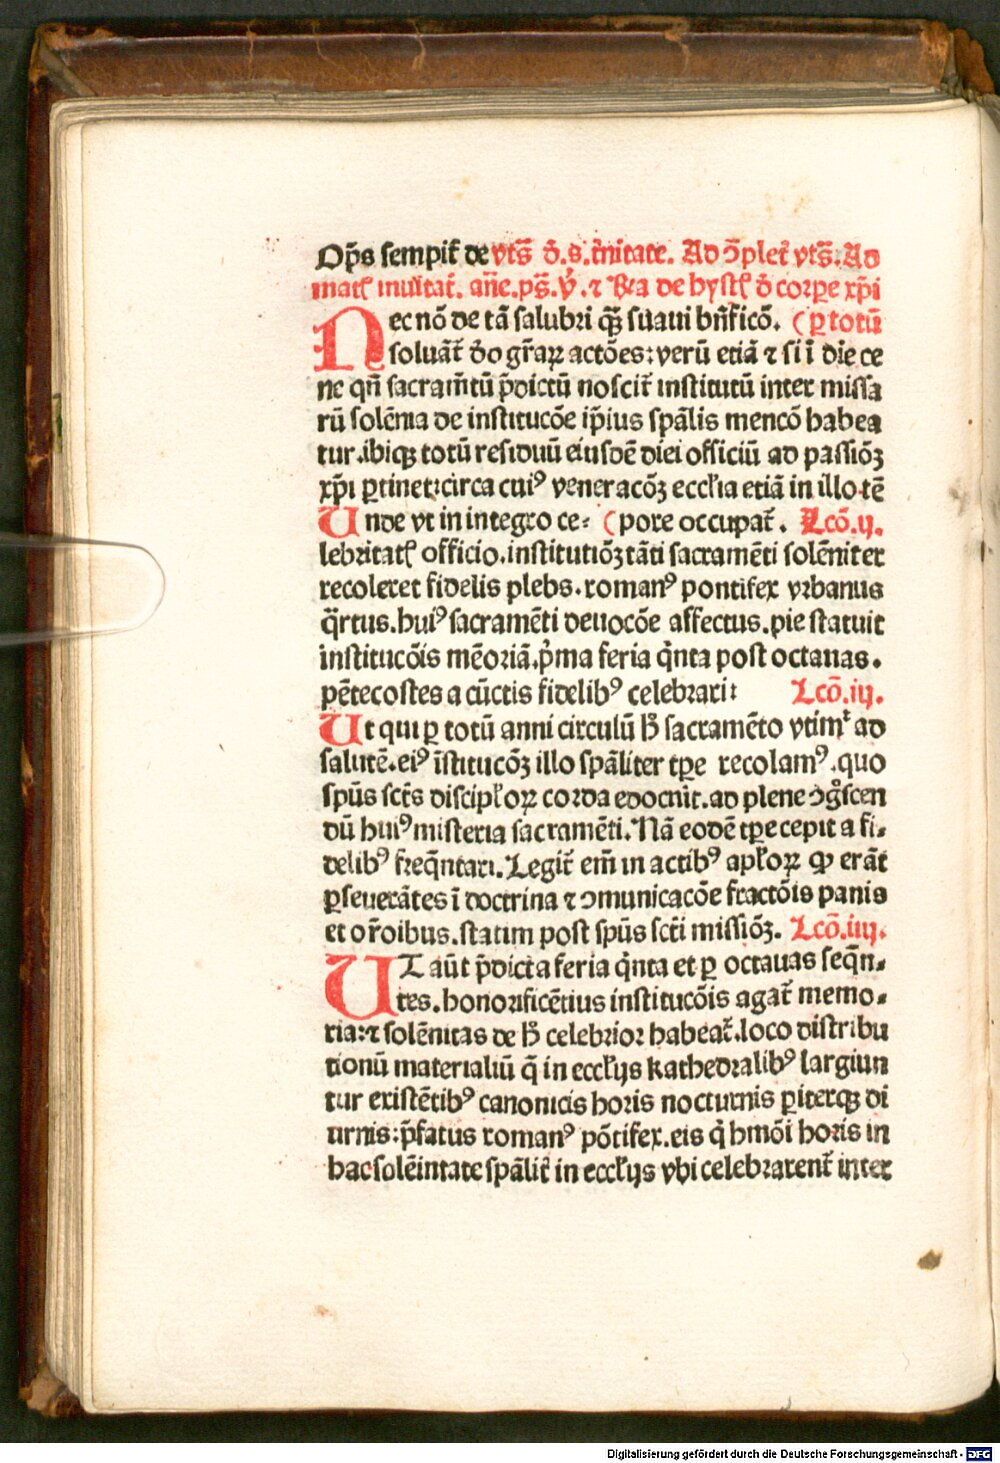 Op̄s sempit̄ de vts̄ d̄.s.t̄nitate. Ad ɔ̄plet̄ vts̄. Ad
matꝭ inuitat̄. an̄e.ps̄.v᷈.⁊ Br̄a de hystꝭ d̄ corꝑe xp̄i
Nec nō de tā salubri qꝫ̄ suaui bn̄ficō. (ꝑ totū
soluāt̄ do gr̄aꝝ actōes: verū etiā ⁊ si ī die ce
ne qn̄ sacram̄tū p̄dictū noscit̄ institutū inter missa
rū solēnia de institucōe ip̄ius spālis mencō habea
tur.ibiqꝫ totū residuū eiusdē diei officiū ad passiōꝫ
xp̄i ꝑtinet: circa cuiꝰ veneracōꝫ eccl̄ia etiā in illo tē
Unde vt in integro ce: (pore occupat̄. Lcō.ij.
lebritatꝭ officio.institutiōꝫ tāti sacramēti solēniter
recoleret fidelis plebs.romanꝰ pontifex vrbanus
q̄rtus.huiꝰ sacramēti deuocōe affectus.pie statuit
institucōis mēoriā.p̄ma feria q̄nta post octauas.
pētecostes a cūctis fidelibꝰ celebrari: Lcō.iij.
Ut qui ꝑ totū anni circulū h̄ sacramēto vtimᷣ ad
salutē.eiꝰ īstitucōꝫ illo spāliter tꝑe recolamꝰ.quo
spūs sct̄s discipl̄oꝝ corda edocuit.ad plene ɔgᷣscen
dū huiꝰ misteria sacramēti. Nā eodē tꝑe cepit a fi-
delibꝰ freq̄ntari. Legit̄ em̄ in actibꝰ apl̄oꝝ ꝙ erāt
ꝑseuerātes ī doctrina ⁊ ɔmunicacōe fractōis panis
et or̄oibus.statim post spūs sct̄i missiōꝫ. Lcō.iiij.
UT aūt p̄dicta feria q̄nta et ꝑ octauas seq̄n-
tes.honorificētius institucōis agat̄ memo-
ria: ⁊ solēnitas de h̄ celebrior habeat̄.loco distribu
tionū materialiū q̄ in eccl̄ijs kathedralibꝰ largiun
tur existētibꝰ canonicis horis nocturnis ꝑiterqꝫ di
urnis: p̄fatus romanꝰ pōtifex.eis q̄ hmōi horis in
hac solēnitate spālit̄ in eccl̄ijs vbi celebrarent̄ inter
Digitalisierung gefördert durch die Deutsche Forschungsgemeinschaft - DFG